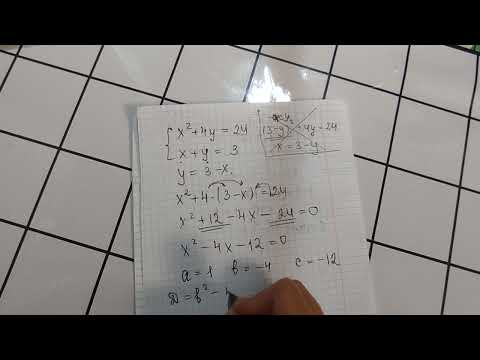 x² + 4y = 24
x + y = 3
y = 3 - x.
x² + 4·(3 - x) = 24
x² + 12 - 4x - 24 = 0
x² - 4x - 12 = 0
a = 1 b = -4 c = -12
D = b² -
+ 4y = 24
x = 3 - y